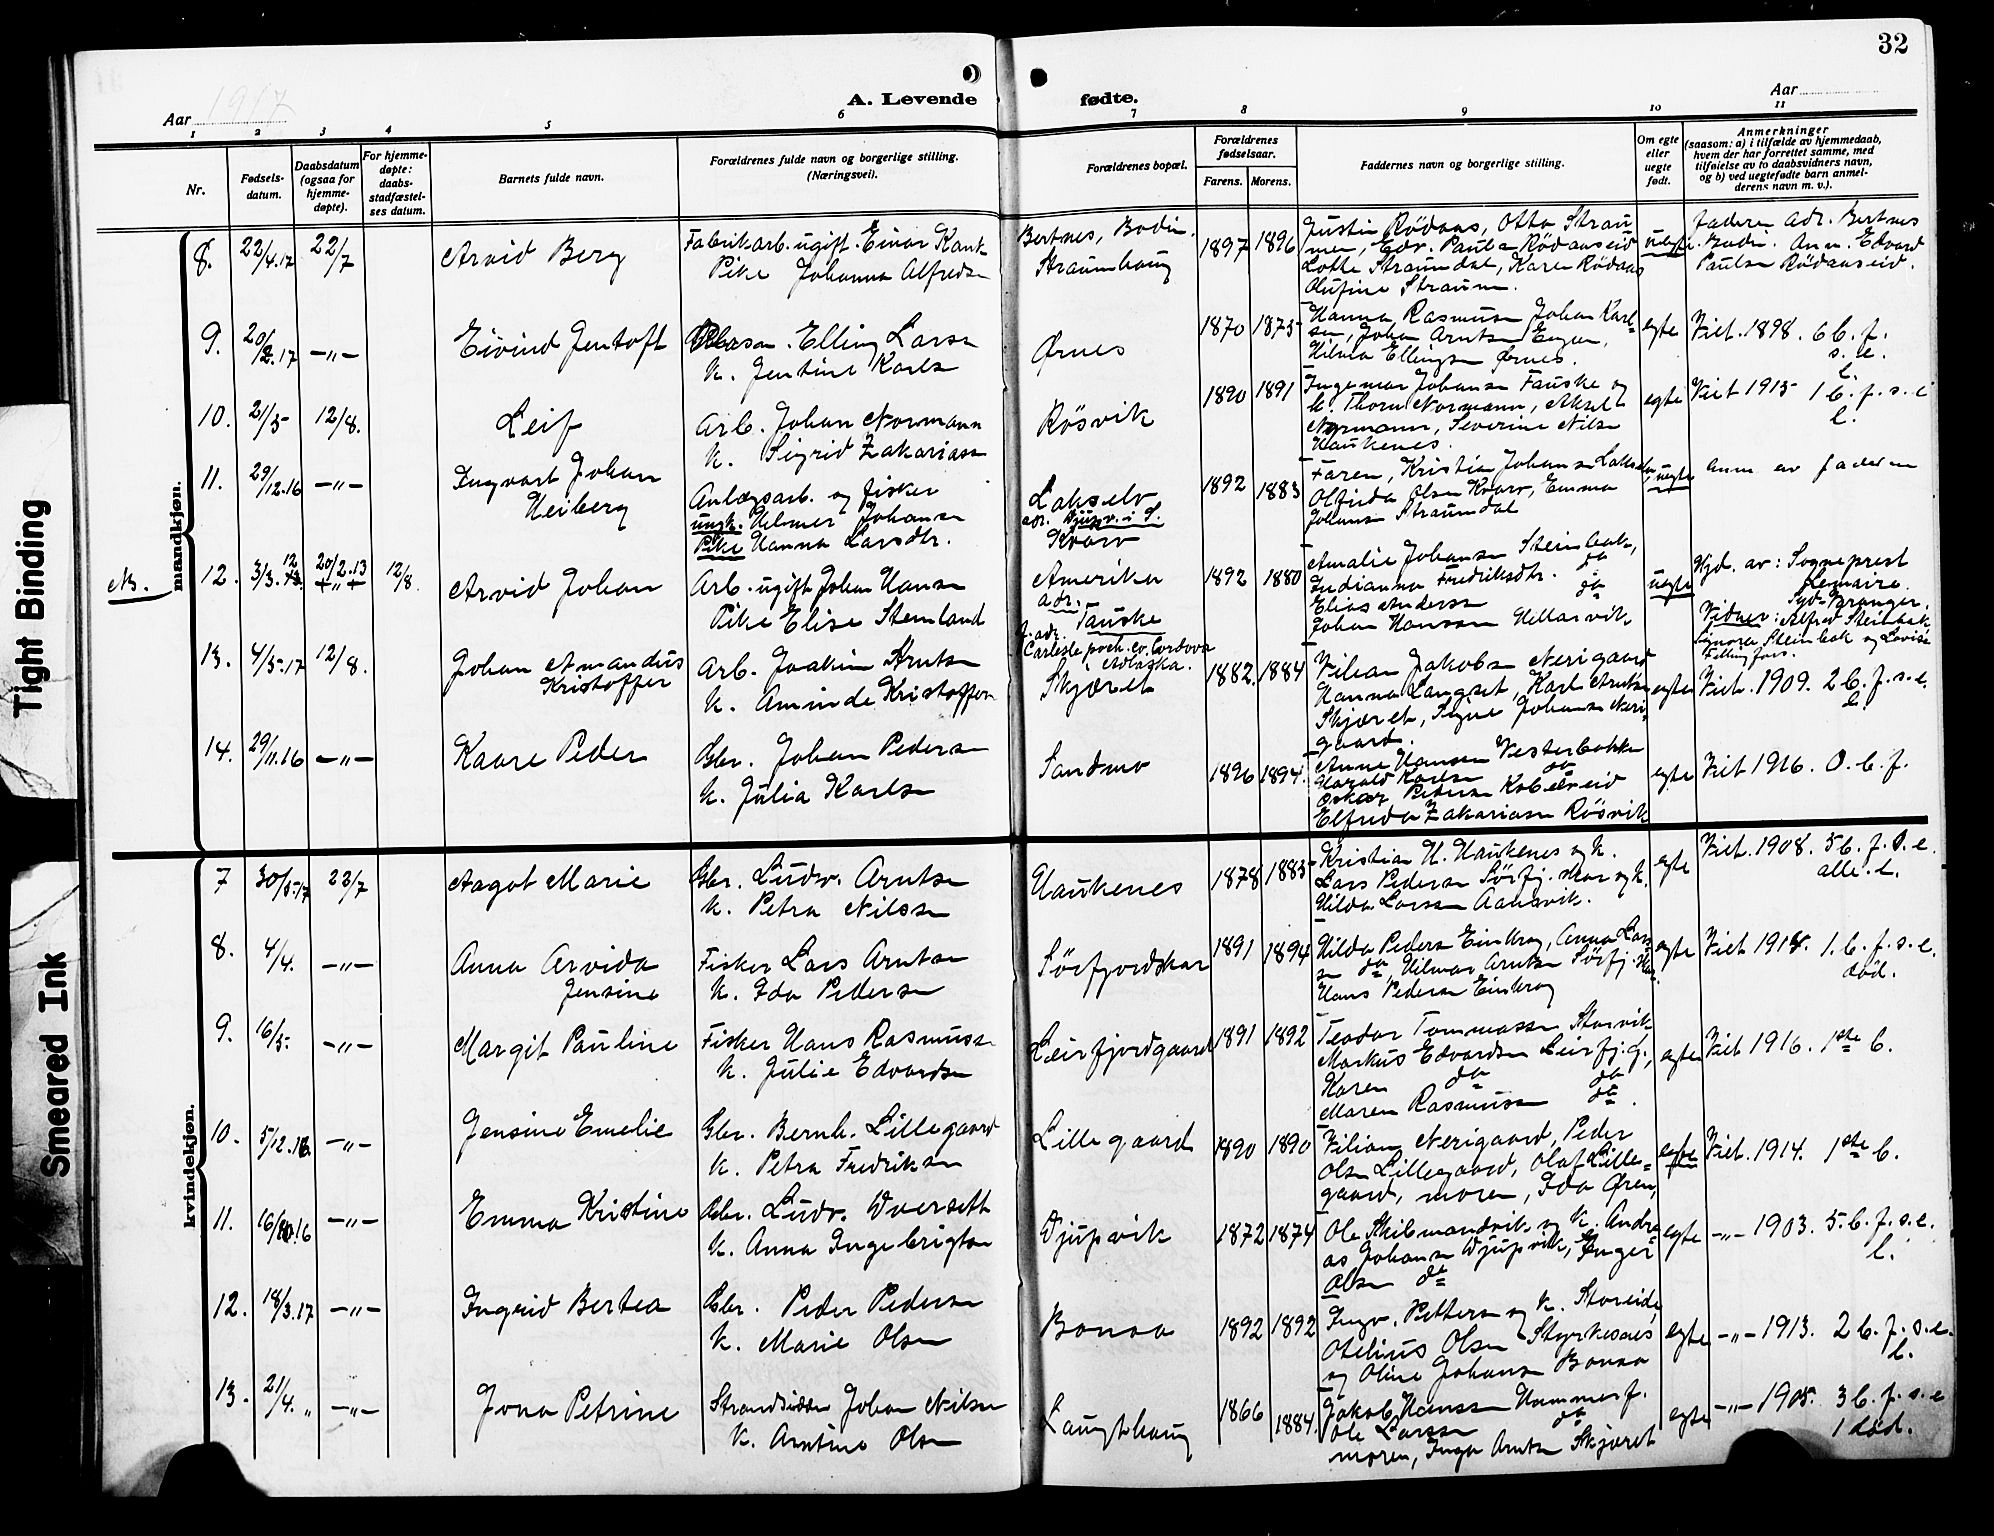 32
Aar 1917
A. Levende fødte.
Aar
1 2 3 4 5 6 7 8 9 10 11
Nr.
Fødsels-
datum.
Daabsdatum
(ogsaa for
hjemme-
døpte).
For hjemme-
døpte:
daabs-
stadfæstel-
ses datum.
Barnets fulde navn.
Forældrenes fulde navn og borgerlige stilling.
(Næringsvei).
Forældrenes bopæl.
Forældrenes
fødselsaar.
Farens. Morens.
Faddernes navn og borgerlige stilling.
Om egte
eller
uegte
født.
Anmerkninger
(saasom: a) i tilfælde av hjemmedaab,
hvem der har forrettet samme, med
tilføielse av to daabsvidners navn,
og b) ved uegtefødte barn anmel-
derens navn m. v.).
mandkjøn.
8. 22/4.17 22/7 Arvid Berg
Fabrikarb. ugift Einar Hank
Pike Johanna Alfredsn
Bertnes, Bodin.
Straumhaug
1897 1896
Justin Rödaas, Otto Strau-
men, Edv. Paulsn Rödaaseid
Lotte Straumdal, Karen Rödaas
Olufine Straum.
uegte
faderen adr. Bertnes
Bodin. Anm. Edvard
Paulsn Rödaaseid.
9. 20/2.17 -"- Eivind Jentoft
Elling Larsn
K. Jentine Karlsn
Ørnes
1870 1875
Hanna Rasmussn, Johan Karl-
sn, Johan Arntsn Engan,
Hilma Ellingsn Ørnes.
egte
Viet. 1898. 6 b. f.
s. e.
l.
10. 21/5 12/8. Leif
Arb. Johan Normann
K. Sigrid Zakariassn
Rösvik
1890 1891
Ingemar Johansn Fauske og
K. Thora Normann, Aksel
Normann, Severine Nilsn
Haukenes.
egte
Viet 1915 1 b. f. s. e
l.
11. 29/12.16 -"- Ingvart Johan
Heiberg
Anlægsarb. og fisker
ungk. Helmer Johansn
Pike Hanna Larsdtr.
Lakselv
adr. Djupv. i S.
Kvarv
1892 1883
Faren, Kristian Johansn Lakselv,
Olfrida Olsen Kvarv, Emma
Johansn Straumdal
uegte
Anm av faderen
NB.
12. 3/3. 12 20/2.13 12/8. Arvid Johan
Arb. ugift Johan Hansn
Pike Elise Stemland
Amerika
adr:
Fauske
f. adr.
Carlesle poch. co. Cordova
Adlaska.
1892 1880
Amalie Johansn Steinbak,
Indianna Fredriksdtr. do
Elias Anderssn do
Johan Hanssn Hellarvik
uegte
Hjd. av: Sogneprest
Lemaire
Syd-Varanger.
Vidner: Alfred Steinbak
Signora Steinbak og Lovise
13. 4/5.17 12/8. Johan Amandus
Kristoffer
Arb. Joakim Arntsn
K. Aminde Kristoffersn
Skjæret
1882. 1884
Vilian Jakobsn Nerigaard
Hanna Langset, Karl Arntsn
Skjæret, Signe Johansn Neri-
gaard.
egte
Viet. 1909. 2 b. f. s. e.
l.
14. 29/11.16 -"- Kaare Peder
Gbr. Johan Pedersn
K. Julia Karlsn
Sandmo
1896 1894.
Anne Hansen Vesterbakke
Harald Karlsn do
Oskar Pedersn Kobbereid
Elfrida Zakariasn Rösvik
egte
Viet 1916. 0. b. f.
kvindekjøn.
7 30/5.17 22/7 Aagot Marie
Gbr. Ludv. Arntsn
K. Petra Nilssn
Haukenes
1878 1883
Kristian H. Haukenes og K.
Lars Pedersn Sörfj. skar og K.
Hilda Larssn Aansvik.
egte
Viet. 1908. 5 b. f. s. e.
alle. l.
8. 4/4. -"- Anna Arvida
Jensine
Fisker Lars Arntsn
K. Ida Pedersn
Sörfjordskar
1891 1894
Hilda Pedersn Einkrog, Anna Lars-
sn do, Hilmar Arntsn Sörfj. skar
Hans Pedersn Einkrog
egte
Viet. 1914. 1. b. f. s. e.
död.
9. 16/5. -"- Margit Pauline
Fisker Hans Rasmussn
K. Julie Edvardsn
Leirfjordgaard
1891 1892
Teodor Tommassn Storvik
Markus Edvardsn Leirfj. g.,
Karen do do
Maren Rasmussn do.
egte
Viet 1916. 1ste b.
10. 5/12.16 -"- Jensine Emelie
Gbr. Bernh. Lillegaard
K. Petra Fredriksn
Lillegaard
1890 1890
Vilian Nerigaard, Peder
Olsn Lillegaard, Olaf Lille-
gaard, moren, Ida Ören,
egte
Viet. 1914. 1ste b.
11. 16/10.16 -"- Emma Kristine
Gbr. Ludv. Dversett
K. Anna Ingebrigtsn
Djupvik
1872 1874
Ole Skibmandvik og K. Andre-
as Johansn Djupvik, Inger
Olsn do
egte
-"- 1903. 5. b. f. s. e.
l.
12. 18/3.17 -"- Ingrid Bertea
Gbr. Peder Pedersn
K. Marie Olsn
Bonaa
1892 1892
Ingv. Pettersn og K. Storeide,
Otelius Olsn Styrkesnes
og Oline Johansn Bonaa
egte
-"- 1913. 2 b. f. s. e.
l.
13. 21/4. " -"- Jona Petrine
Strandsidder Johan Nilsn
K. Arntine Olsn
Laugthaug
1866 1884.
Jakob Hanssn Hammerf.
Ole Larssn do
moren, Inga Arntsn Skjæret
egte
-"- 1905. 3 b. f. s. e
1 död.
Tight Binding
Smeared Ink